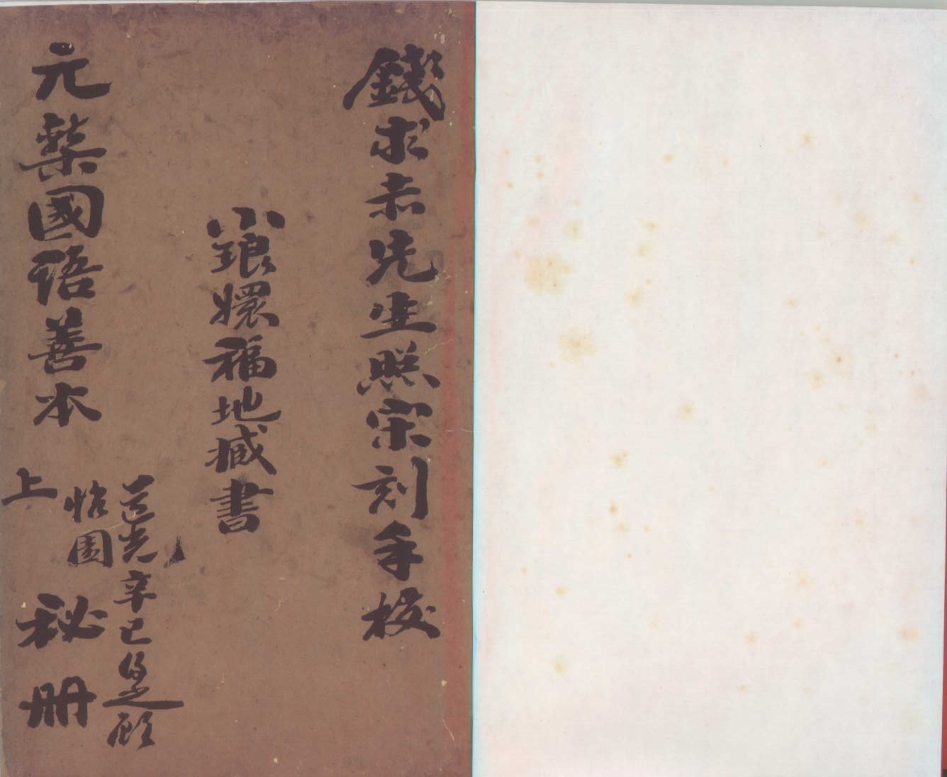 錢求赤先生照宋刻手校
小琅嬛福地臧書
道光辛巳得之顧
怡園
元槧國語善本
秘册
上